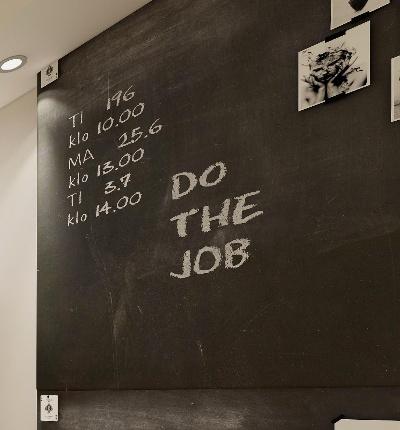 TI 196
klo 10.00
MA 25.6
klo 13.00
TI 3.7
klo 14.00
DO
THE
JOB